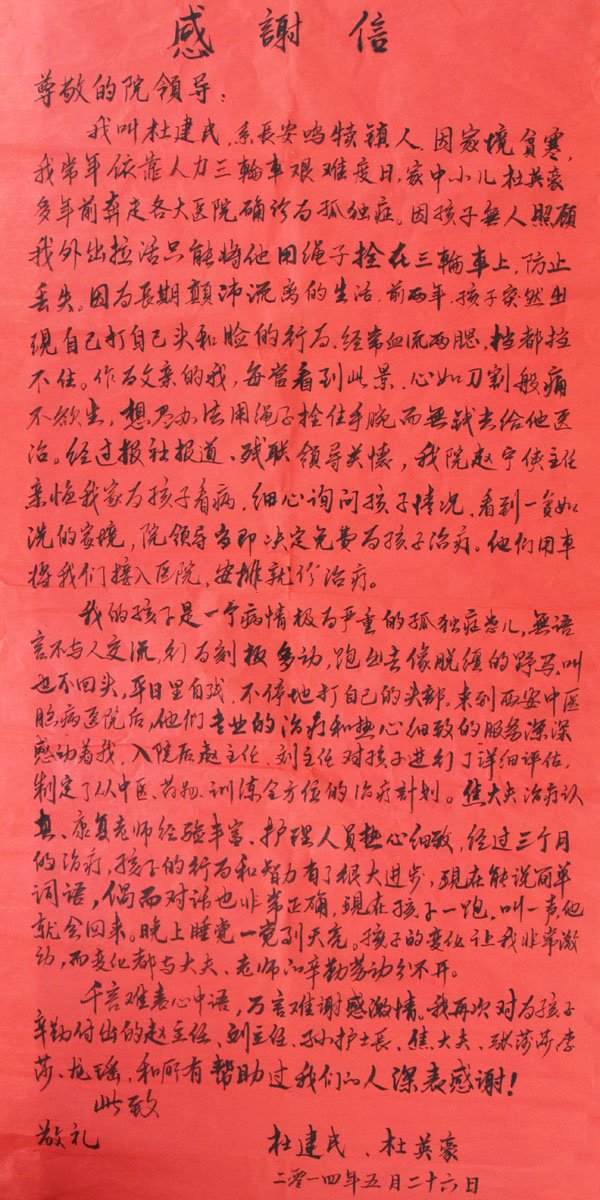 感謝信
尊敬的院領导：
我叫杜建民，系長安鸣犊镇人。因家境貧寒，
我常年依靠人力三輪車艰难度日，家中小儿杜英豪
多年前奔走各大医院确诊为孤独症。因孩子無人照顾
我外出拉活只能将他用绳子拴在三輪車上，防止
丢失。因为長期颠沛流离的生活，前两年，孩子突然出
現自己打自己头和脸的行为，经常血流两腮，挡都挡
不住。作为父亲的我，每當看到此景，心如刀割般痛
不欲生，想办法用绳子拴住手腕而無钱去给他医
治。经过报社报道、残联领导关懷，我院赵宁侠主任
亲临我家为孩子看病，细心询问孩子情况，看到一貧如
洗的家境，院领导當即决定免费为孩子治疗。他们用車
将我们接入医院，安排就诊治疗。
我的孩子是一个病情极为严重的孤独症患儿，無语
言不与人交流，行为刻板多动，跑出去像脱缰的野马，叫
也不回头，平日里自戏，不停地打自己的头部，来到西安中医
脑病医院后，他们专业的治疗和热心细致的服务深深
感动着我，入院后赵主任、刘主任对孩子进行了详细评估，
制定了从中医、药物、训练全方位的治疗計划。焦大夫治疗认
真、康复老师经验丰富、护理人员热心细致，经过三个月
的治疗，孩子的行为和智力有了很大进步，現在能说简单
词语，偶而对话也非常正确，現在孩子一跑，叫一声他
就会回来。晚上睡觉一觉到天亮。孩子的变化让我非常激
动，而变化都与大夫、老师的辛勤劳动分不开。
千言难表心中语，万言难谢感激情。我再次对为孩子
辛勤付出的赵主任、刘主任、孙小护士長、焦大夫、张莎莎李
莎、尤瑶，和所有帮助过我们的人深表感谢！
此致
敬礼
杜建民、杜英豪
二零一四年五月二十六日